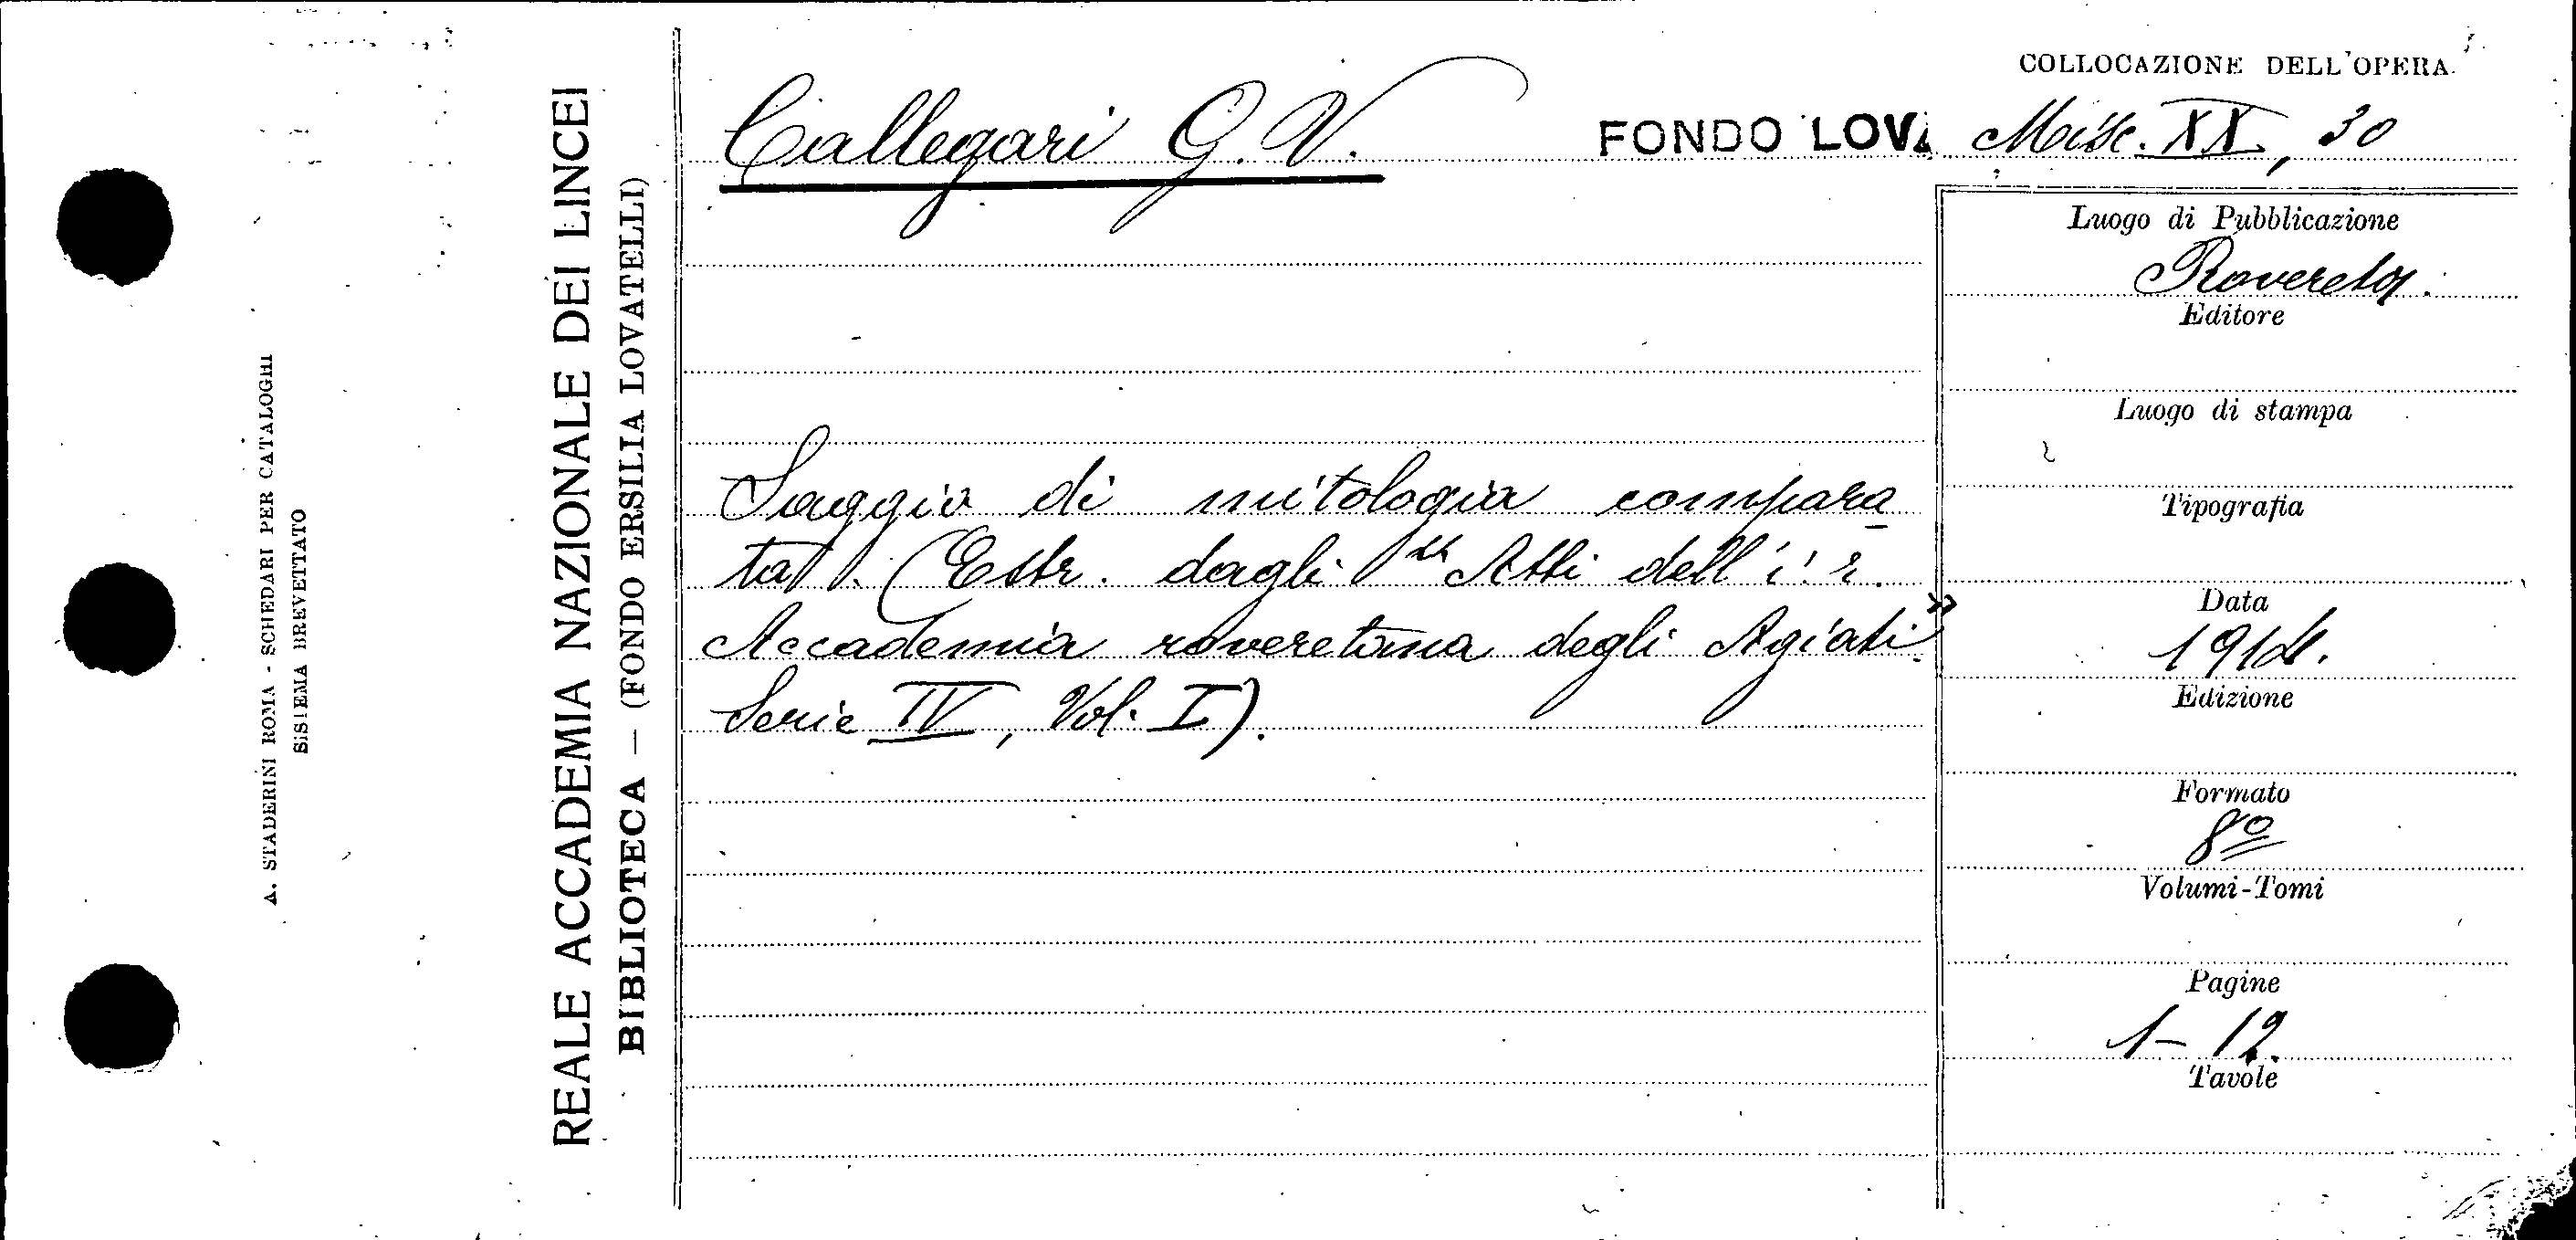 A. STADERINI ROMA - SCHEDARI PER CATALOGHI
SISTEMA BREVETTATO
REALE ACCADEMIA NAZIONALE DEI LINCEI
BIBLIOTECA — (FONDO ERSILIA LOVATELLI)
Callegari G. V.
FONDO LOVA
COLLOCAZIONE DELL'OPERA
Misc. XX, 30
Saggio di mitologia compara
ta. (Estr. dagli "Atti dell'i. r.
Accademia roveretana degli Agiati"
Serie IV, Vol. I).
Luogo di Pubblicazione
Rovereto.
Editore
Luogo di stampa
Tipografia
Data
1914.
Edizione
Formato
8º
Volumi-Tomi
Pagine
1-12.
Tavole